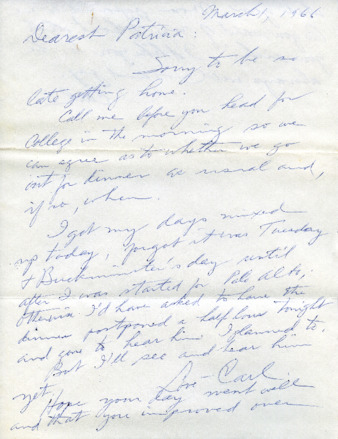 March 1, 1966
Dearest Patricia:
Sorry to be so
late getting home.
Call me before you head for
college in the morning so we
can agree as to whether we go
out for dinner as usual and,
if so, when.
I got my days mixed
up today, forgot it was Tuesday
& Buckminster's day until
after I was started for Palo Alto;
otherwise I'd have asked to have the
dinner postponed a half hour tonight
and gone to hear him I planned to.
But I'll see and hear him
yet.
Love - Carl
Hope your day went well
and that you improved over